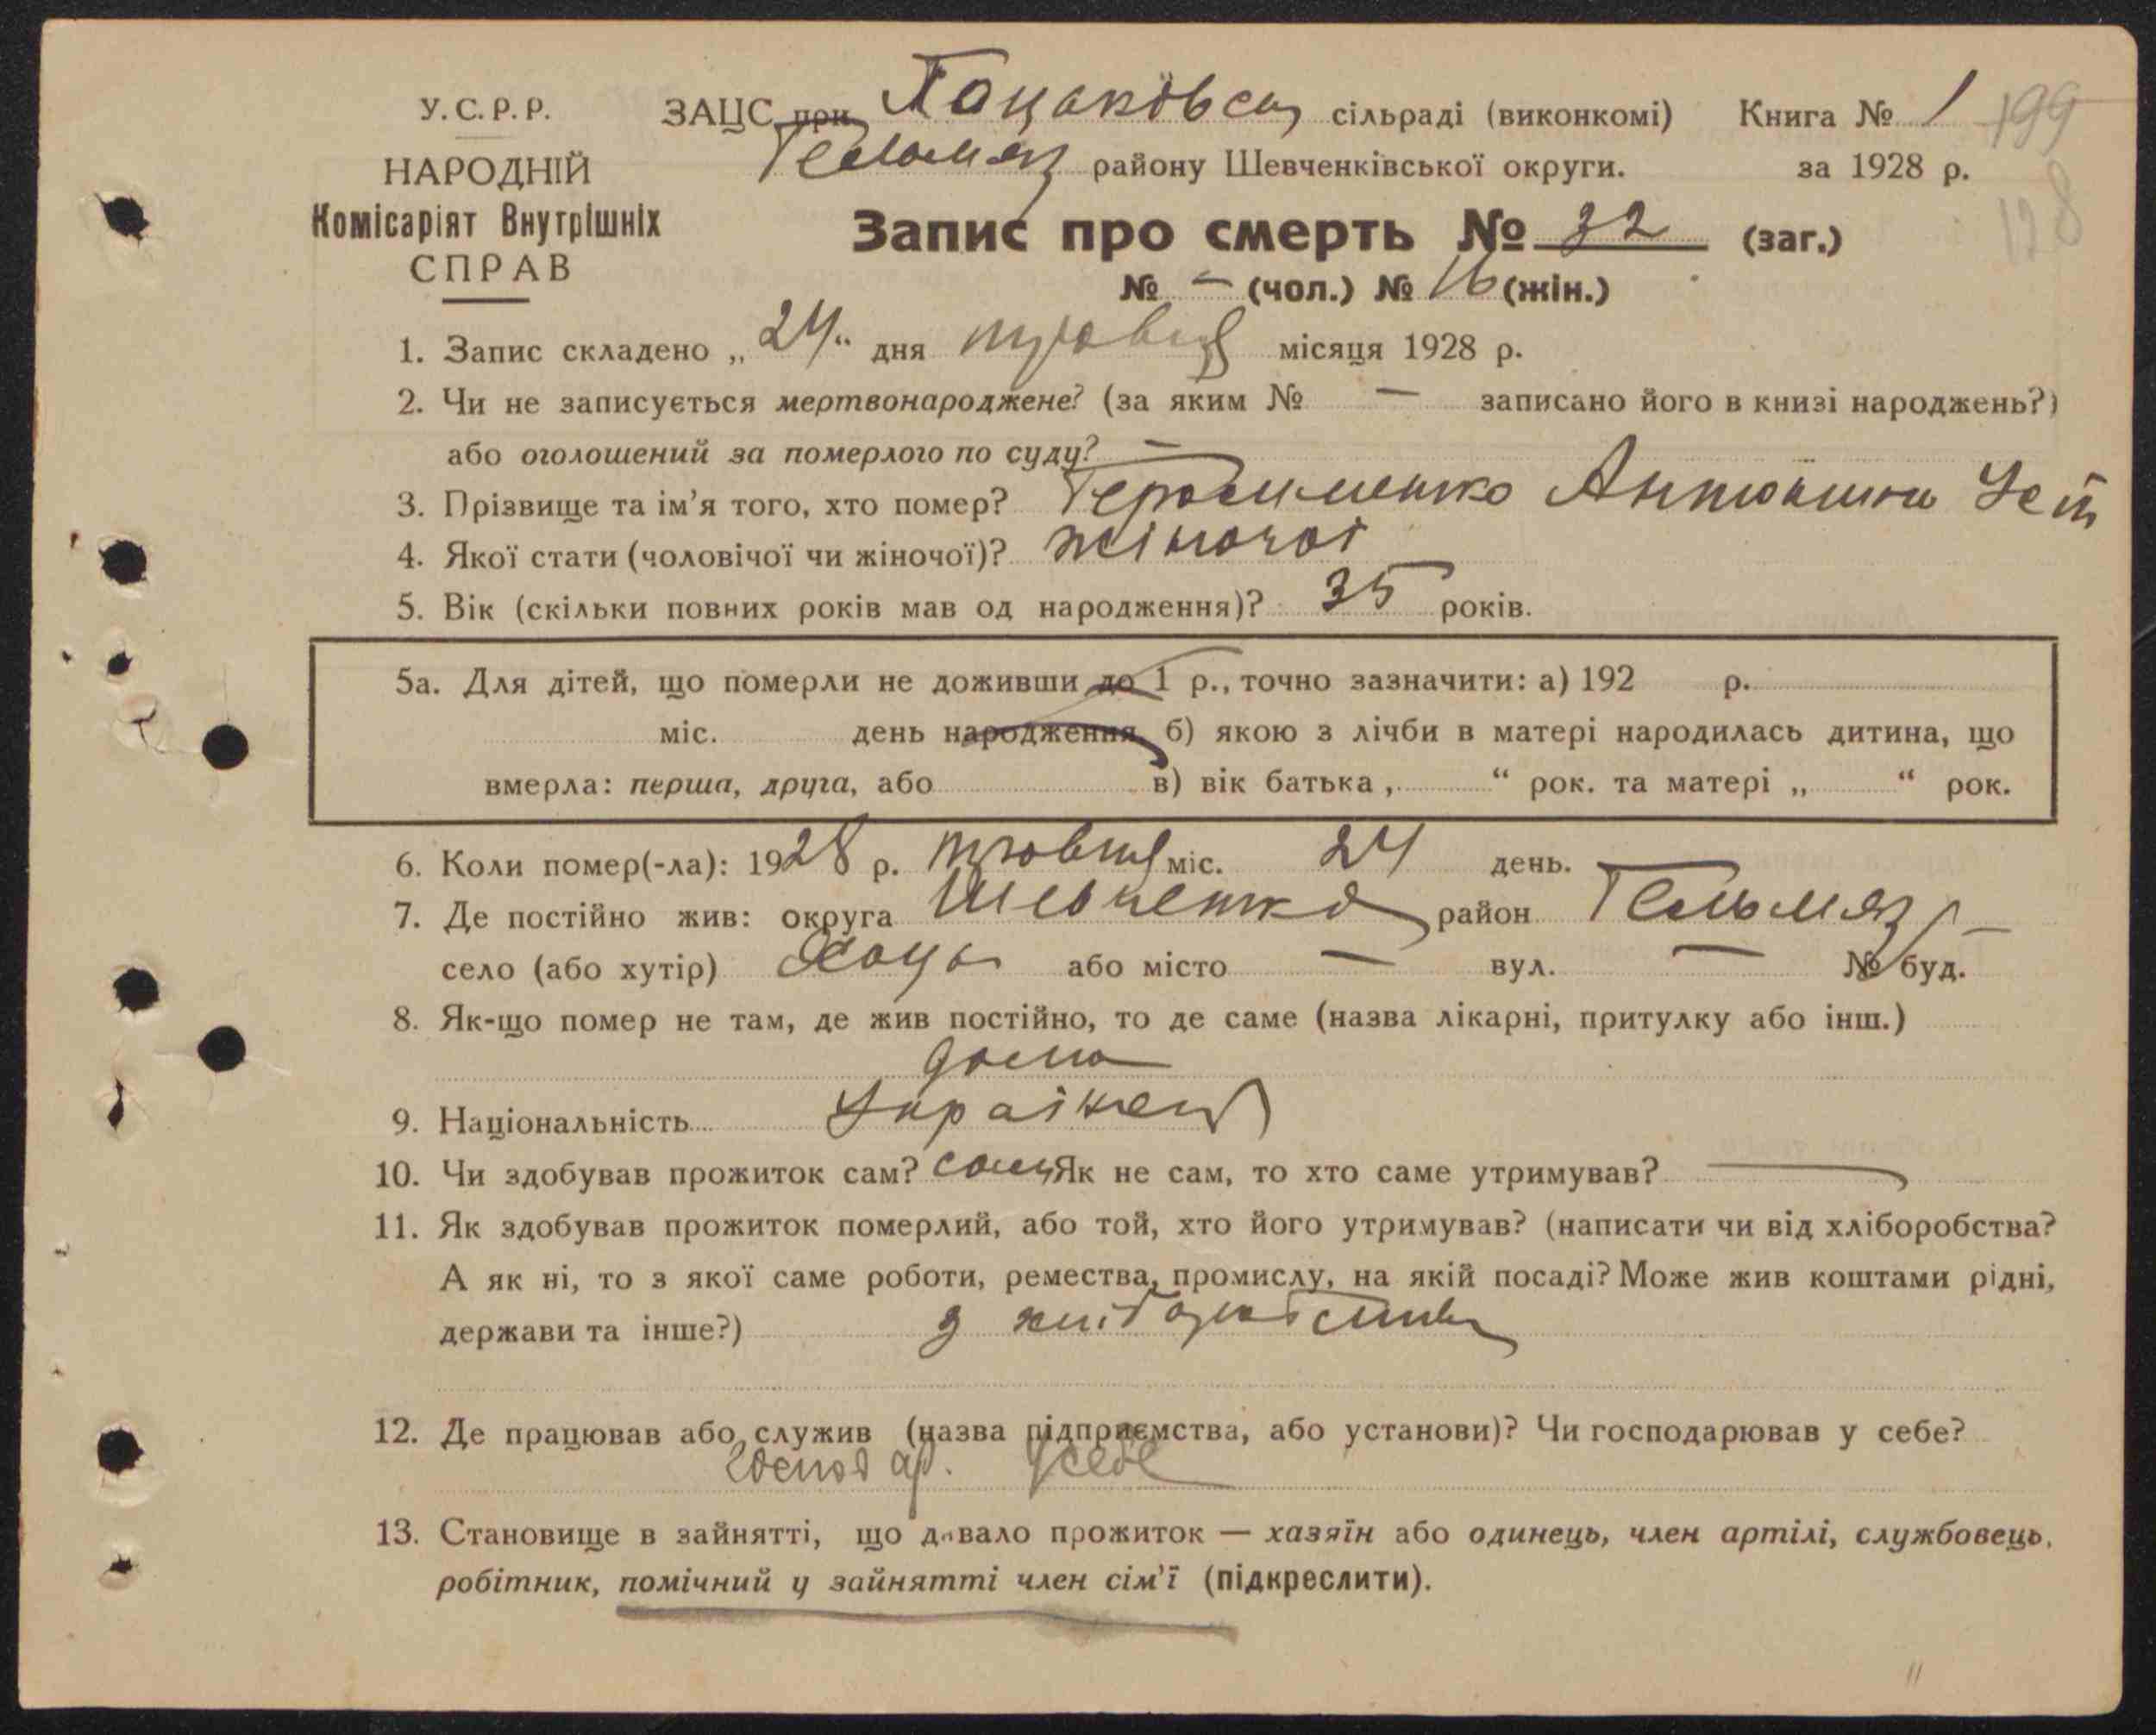 У.С.Р.Р. ЗАЦС при сільраді (виконкомі) Книга № 1 199
НАРОДНІЙ Гельмяз району Шевченківської округи. за 1928 р.
Комісаріят Внутрішніх Запис про смерть № 32 (заг.) 128
СПРАВ № — (чол.) № 16 (жін.)
1. Запис складено „24“ дня травня місяця 1928 р.
2. Чи не записується мертвонароджене? (за яким № — записано його в книзі народжень?)
або оголошений за померлого по суду? —
3. Прізвище та ім’я того, хто помер? Герасименко
4. Якої стати (чоловічої чи жіночої)? жіночоі
5. Вік (скільки повних років мав од народження)? 35 років.
5а. Для дітей, що померли не доживши до 1 р., точно зазначити: а) 192 р.
міс. день народження б) якою з лічби в матері народилась дитина, що
вмерла: перша, друга, або в) вік батька „ “ рок. та матері „ “ рок.
6. Коли помер(-ла): 1928 р. травня міс. 24 день.
7. Де постійно жив: округа Шевченко район Гельмяз
село (або хутір) Хоцьк або місто — вул. — № буд.
8. Як-що помер не там, де жив постійно, то де саме (назва лікарні, притулку або інш.)
дома
9. Національність Украінец
10. Чи здобував прожиток сам? сам Як не сам, то хто саме утримував? —
11. Як здобував прожиток померлий, або той, хто його утримував? (написати чи від хліборобства?
А як ні, то з якої саме роботи, ремества, промислу, на якій посаді? Може жив коштами рідні,
держави та інше?) з
12. Де працював або служив (назва підприємства, або установи)? Чи господарював у себе?
господар. у себе
13. Становище в зайнятті, що давало прожиток — хазяїн або одинець, член артілі, службовець,
робітник, помічний у зайнятті член сім’ї (підкреслити).